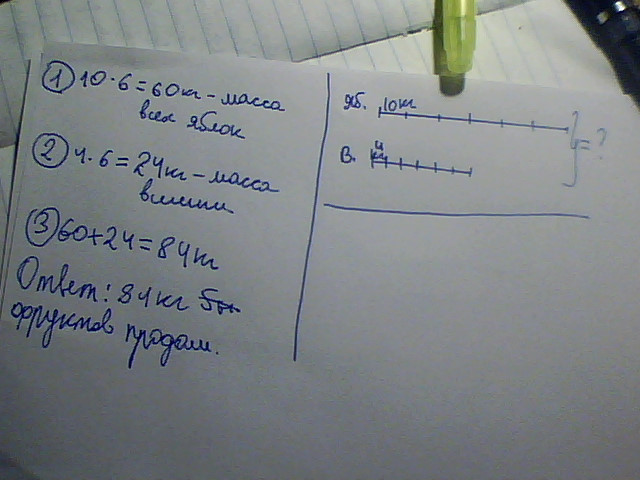 ① 10·6=60кг-масса
всех яблок
② 4·6=24кг-масса
вишни
③ 60+24=84кг
Ответ: 84кг
фруктов продали.
яб. 10кг
В. 4
кг
=?